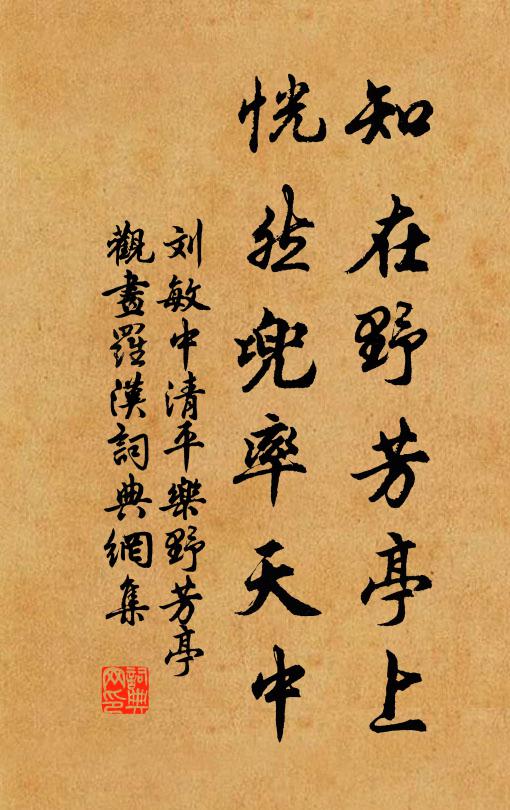 知在野芳亭上
恍然兜率天中
刘敏中清平樂野芳亭
觀畫羅漢詞典網集
詞典網印